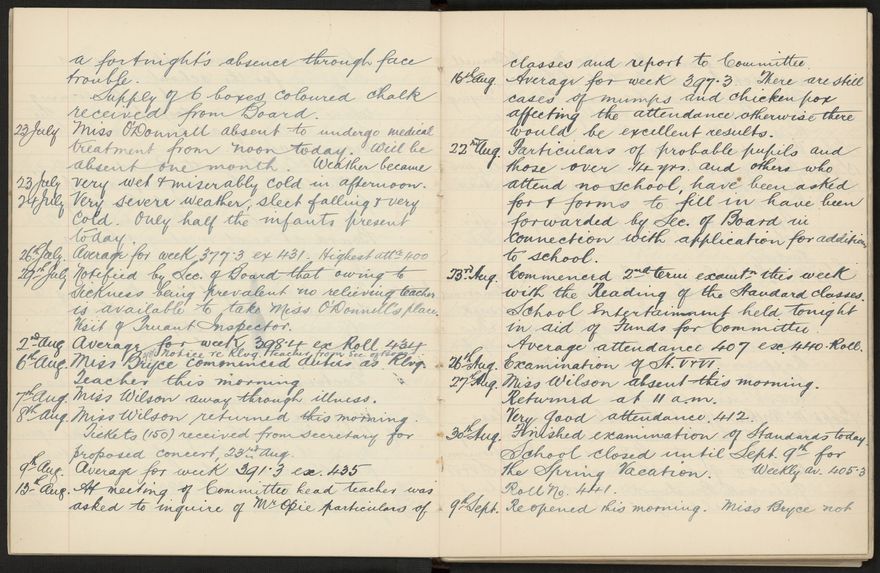 a fortnight's absence through face
trouble.
Supply of 6 boxes coloured chalk
received from Board.
23 July Miss O'Donnell absent to undergo medical
treatment from noon today. Will be
absent one month. Weather became
23 July very wet & miserably cold in afternoon.
24 July Very severe weather, sleet falling & very
cold. Only half the infants present
today.
26th July Average for week 379.3 ex 431. Highest attce 400
29th July Notified by Sec. of Board that owing to
sickness being prevalent no relieving teacher
is available to take Miss O'Donnell's place.
Visit of Truant Inspector.
2nd Aug Average for week 398.4 ex Roll 434
Notice re Relvg. Teacher from Sec
6th Aug. Miss Bryce commenced duties as Relvg.
Teacher this morning
7th Aug. Miss Wilson away through illness.
8th Aug. Miss Wilson returned this morning.
Tickets (150) received from Secretary for
proposed concert, 23rd Aug.
9th Aug. Average for week 391.3 ex. 435
13th Aug. At meeting of Committee head teacher was
asked to inquire of Mr particulars of
classes and report to Committee.
16th Aug. Average for week 397.3 There are still
cases of mumps and chicken pox
affecting the attendance otherwise there
would be excellent results.
22nd Aug. Particulars of probable pupils and
those over 14 yrs. and others who
attend no school, have been asked
for & forms to fill in have been
forwarded by Sec. of Board in
connection with application for addition
to school.
23rd Aug. Commenced 2nd term examtn this week
with the Reading of the Standard classes.
School Entertainment held tonight
in aid of Funds for Committee.
Average attendance 407 exc. 440 Roll.
26th Aug. Examination of St. V & VI.
27th Aug. Miss Wilson absent this morning.
Returned at 11 a.m.
Very good attendance. 412.
30th Aug. Finished examination of Standards today
School closed until Sept. 9th for
the Spring Vacation. Weekly av. 405.3
Roll No. 441.
9th Sept. Re opened this morning. Miss Bryce not